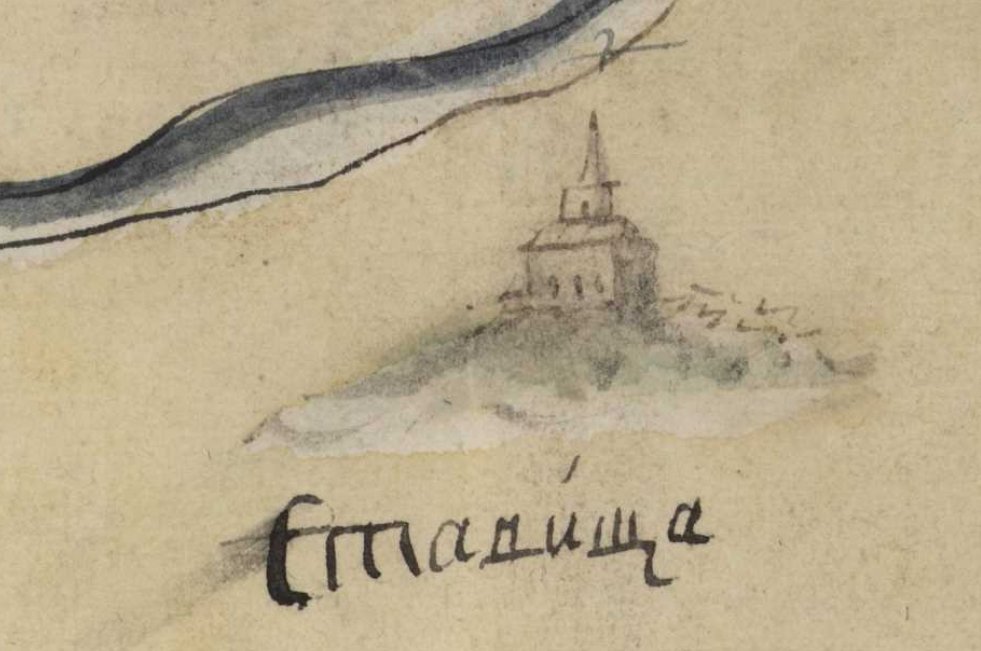 Стави́ща